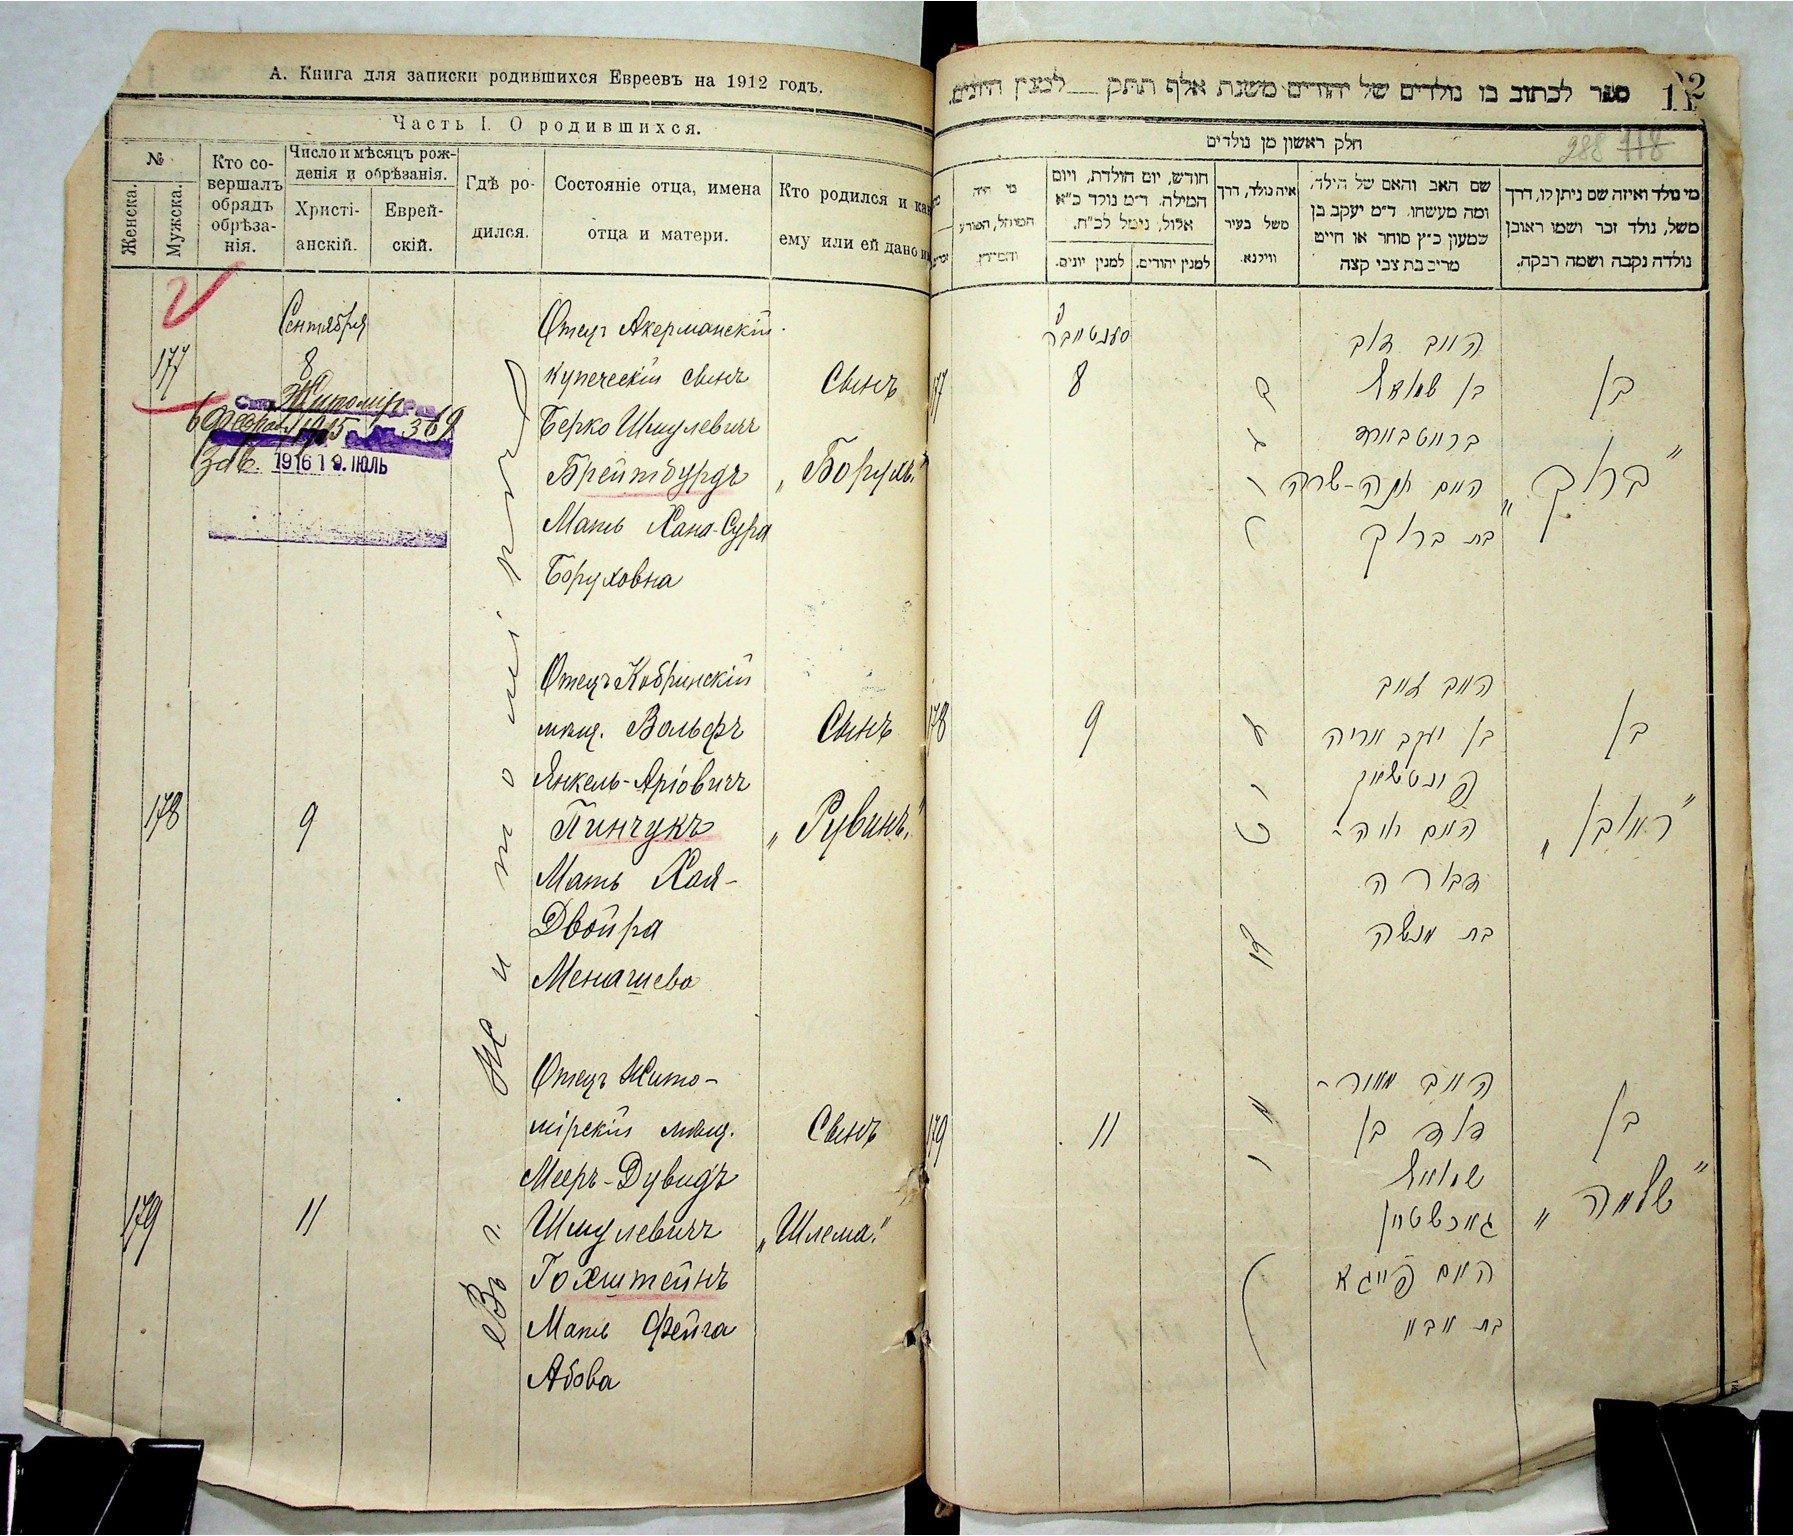 А. Книга для записки родившихся Евреевъ на 1912 годъ.
Часть I. О родившихся.
№
Женска.
Мужска.
Кто со-
вершалъ
обрядъ
обрѣза-
нія.
Число и мѣсяцъ рож-
денія и обрѣзанія.
Христі-
анскій.
Еврей-
скій.
Гдѣ ро-
дился.
Состояніе отца, имена
отца и матери.
Кто родился и как
ему или ей дано
2
177
Сентября
8
Житомір
1915
369
1916 19. ІЮЛЬ
Въ г. Житомірѣ
Отецъ Акерманскій
купеческій сынъ
Берко Шмулевичъ
Брейтбурдъ
Мать Хана-Сура
Боруховна
Сынъ
„Борухъ“
178
9
Отецъ Кобринскій
мѣщ. Вольфъ
Янкель-Аріовичъ
Пинчукъ
Мать Хая-
Двойра
Менашева
Сынъ
„Рувинъ“
179
11
Отецъ Жито-
мірскій мѣщ.
Мееръ-Дувидъ
Шмулевичъ
Гохштейнъ
Мать Фейга
Абова
Сынъ
„Шлема“
ספר לכתוב בו נולדים של יהודים משנת אלף תתק למנין היונים.
חלק ראשון מן נולדים
288 778
מי נולד ואיזה שם ניתן לו, דרך
משל, נולד זכר ושמו ראובן
נולדה נקבה ושמה רבקה.
שם האב והאם של הילד,
ומה מעשהו. ד״מ יעקב בן
שמעון כ״ץ סוחר או חייט
מרים בת צבי קצה
איה נולד, דרך
משל בעיר
ווילנא.
חודש, יום הולדת, ויום
המילה. ד״מ נולד כ״א
אלול, נימל לכ״ח.
למנין יהודים.
למנין יונים.
מי היה
המוהל, הפורע
והמוצץ.
177
8
האב דוב
בן שמואל
האם חנה-שרה
בת ברוך
בן
„ברוך“
178
9
האב זאב
בן יעקב אריה
פינטשוק
האם חיה-
דבורה
בת מנשה
בן
„ראובן“
179
11
האב מאיר-
דוד בן
שמואל
גאכשטיין
האם פייגא
בת אבא
בן
„שלמה“